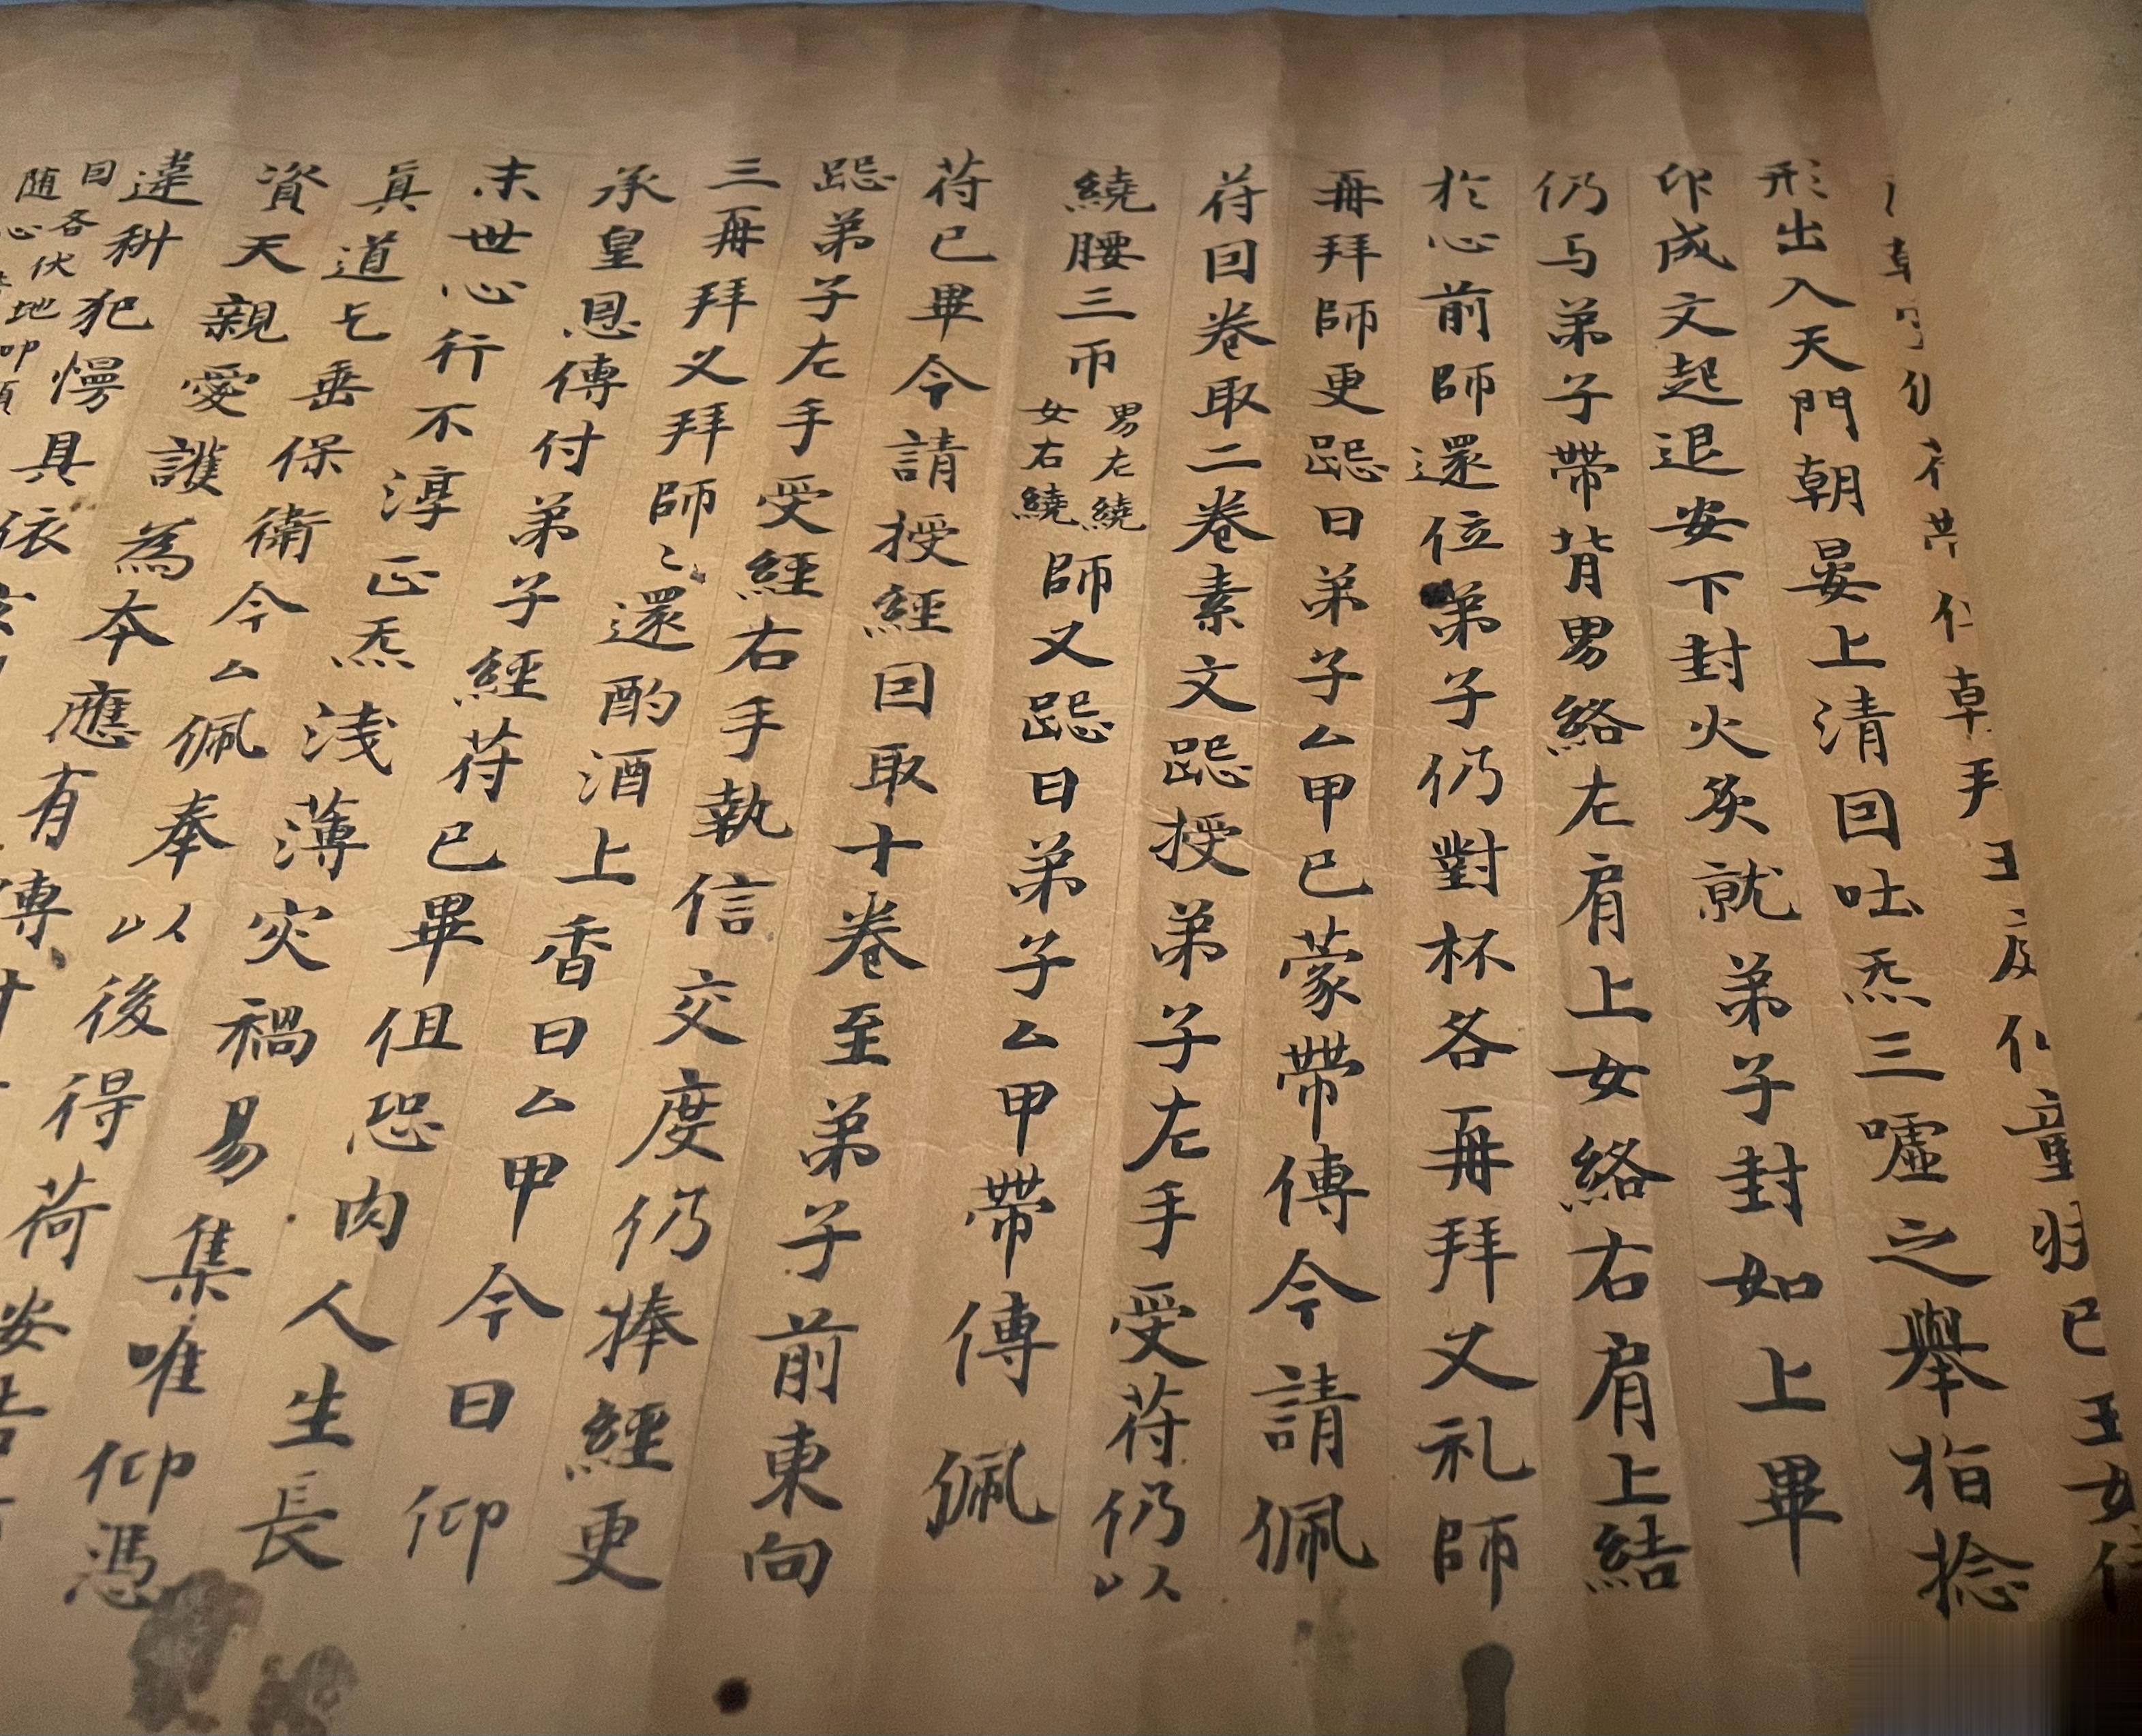 童歸已玉女
形出入天門朝晏上清回吐炁三噓之舉指捻
印成文起退安下封火炙就弟子封如上畢
仍与弟子帶背男絡左肩上女絡右肩上結
於心前師還位弟子仍對杯各再拜又礼師
再拜師更跽曰弟子厶甲已蒙帶傳今請佩
苻回卷取二卷素文跽授弟子左手受苻仍以
繞腰三帀男左繞女右繞師又跽曰弟子厶甲帶傳佩
苻已畢今請授經回取十卷至弟子前東向
跽弟子左手受經右手執信交度仍捧經更
三再拜又拜師〻還酌酒上香曰厶甲今日仰
承皇恩傳付弟子經苻已畢但恐肉人生長
末世心行不淳正炁淺薄灾禍易集唯仰憑
真道乞垂保衛今厶佩奉以後得荷
資天親愛護為本應有傳
違科犯慢具依
回各伏地叩
随心